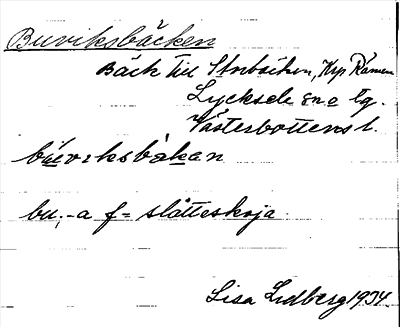 Buviksbäcken
Bäck till Storbäcken, Krp Råmen
Lycksele sn o tg.
Västerbottens l.
bu̇vıksbäkan
bu, -a f = slåtteskoja
Lisa Lidberg 1934.